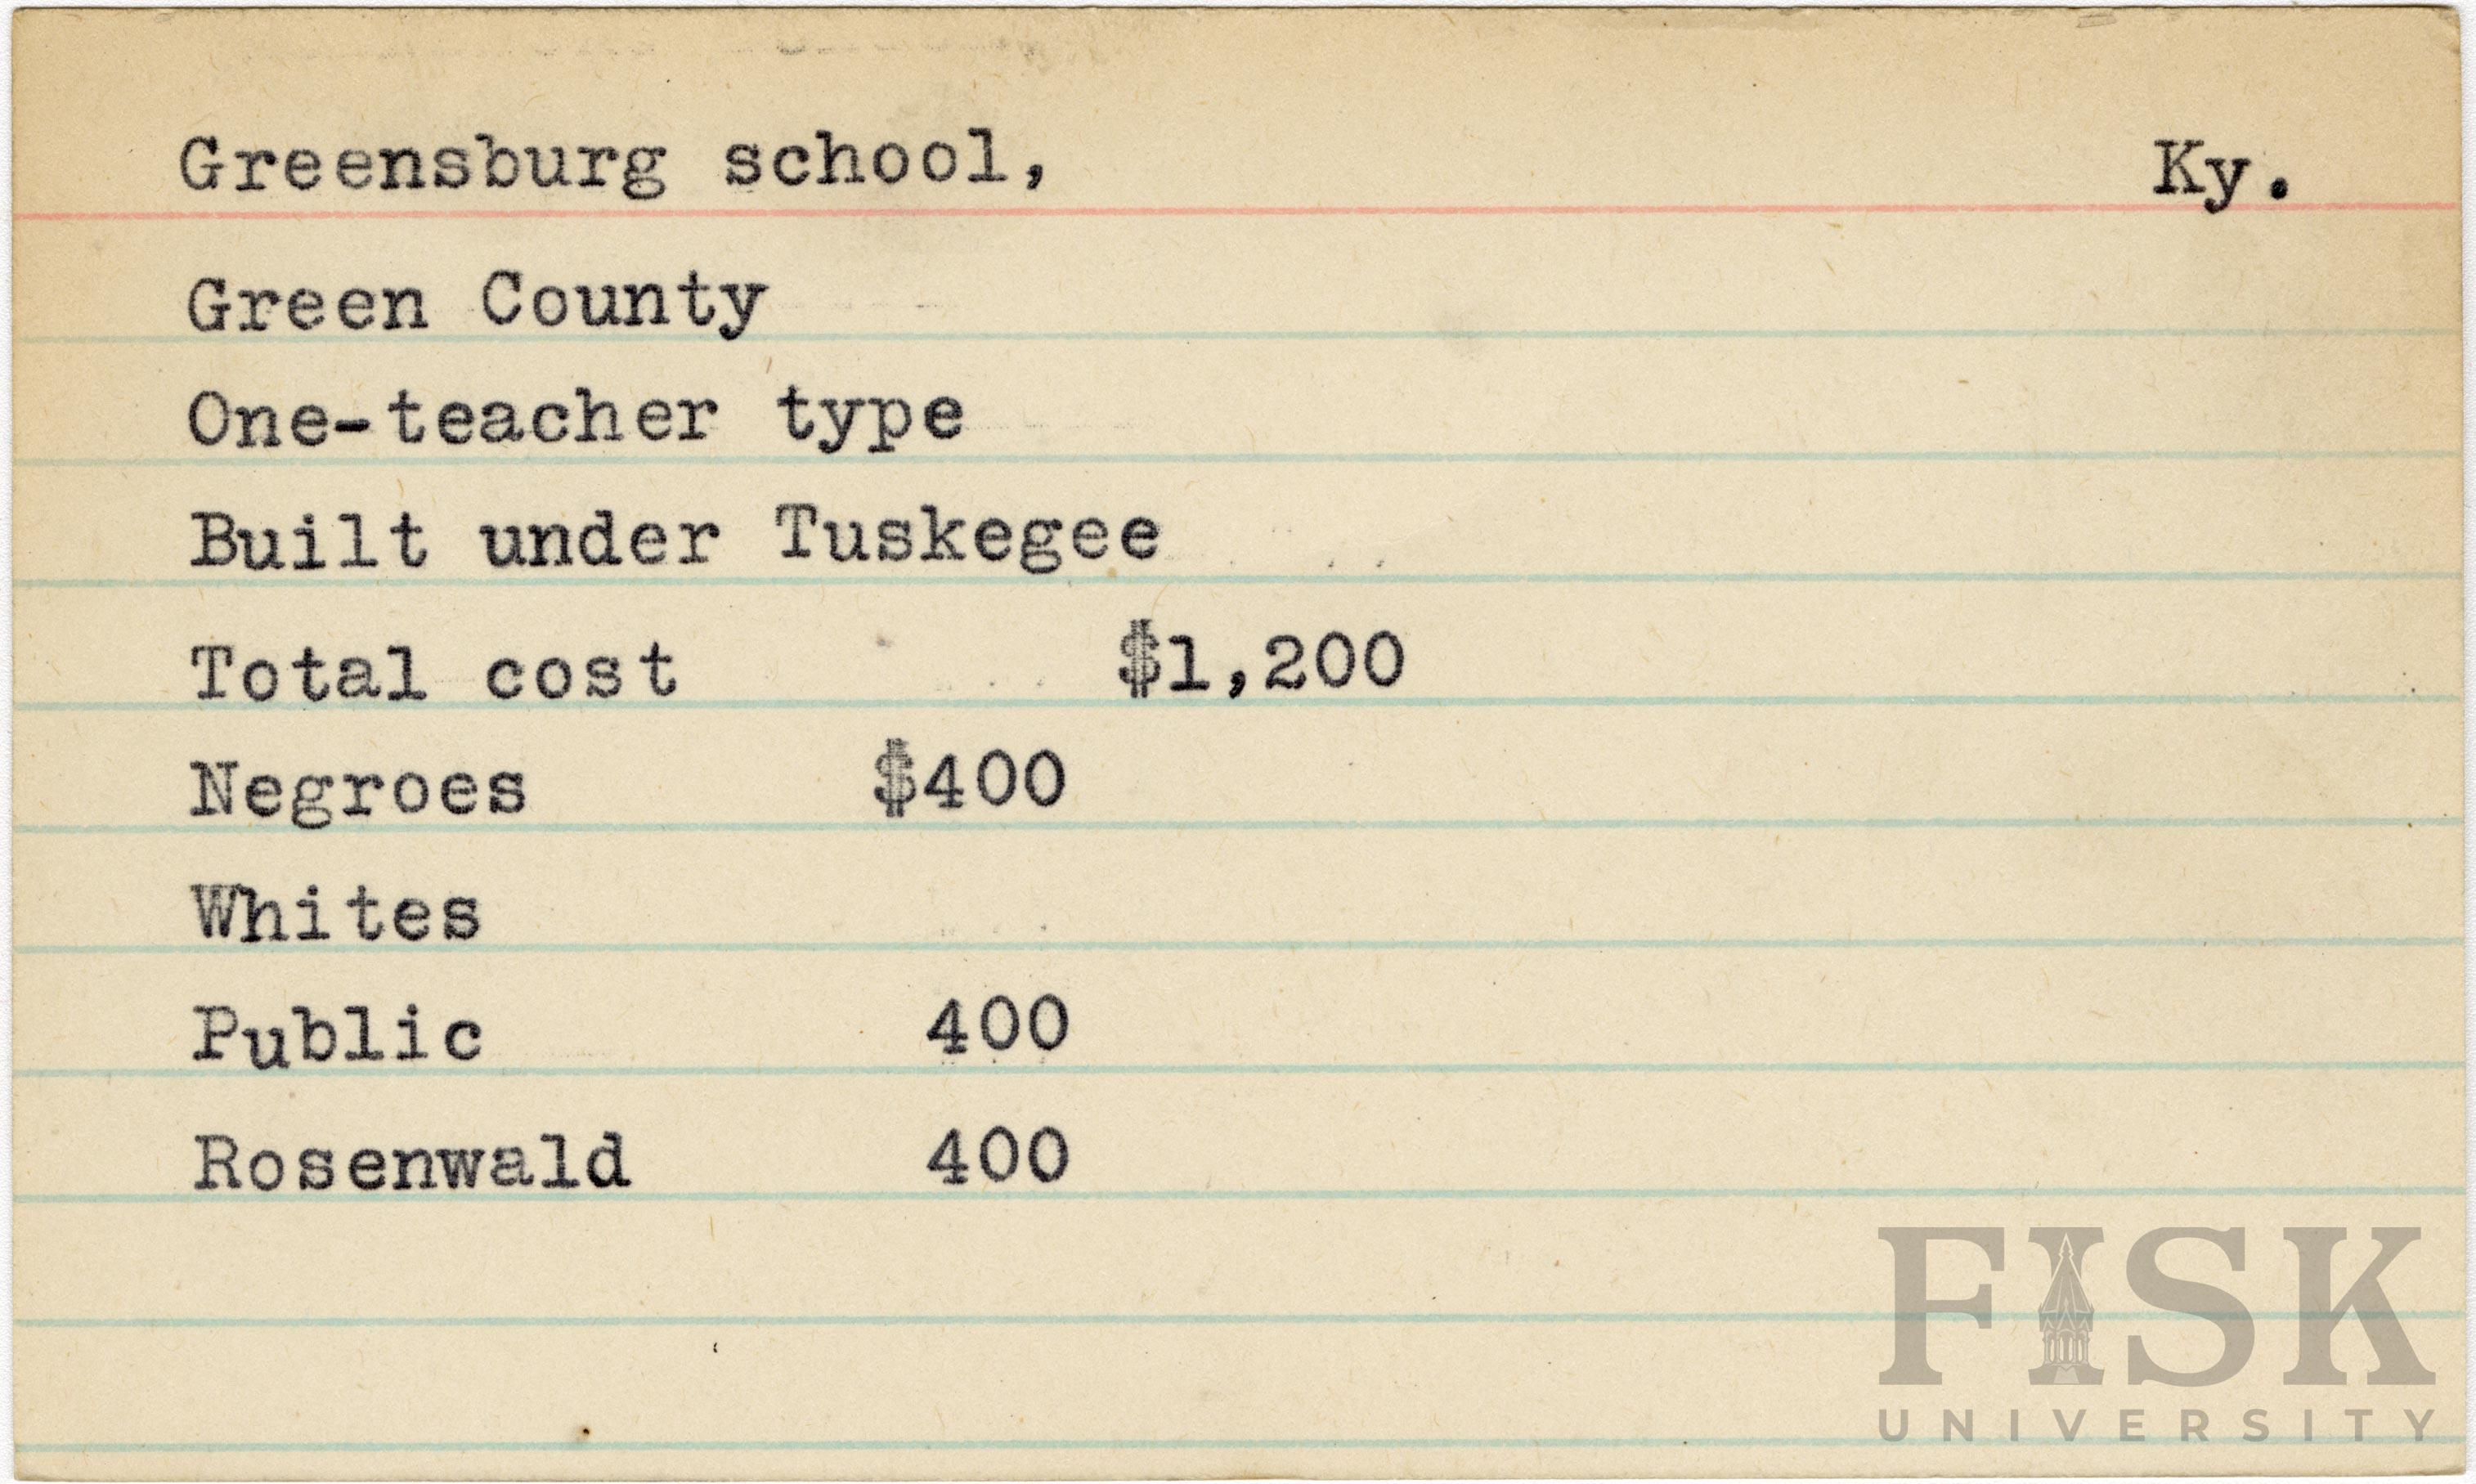 Greensburg school, Ky.
Green County
One-teacher type
Built under Tuskegee
Total cost $1,200
Negroes $400
Whites
Public 400
Rosenwald 400
FISK
UNIVERSITY